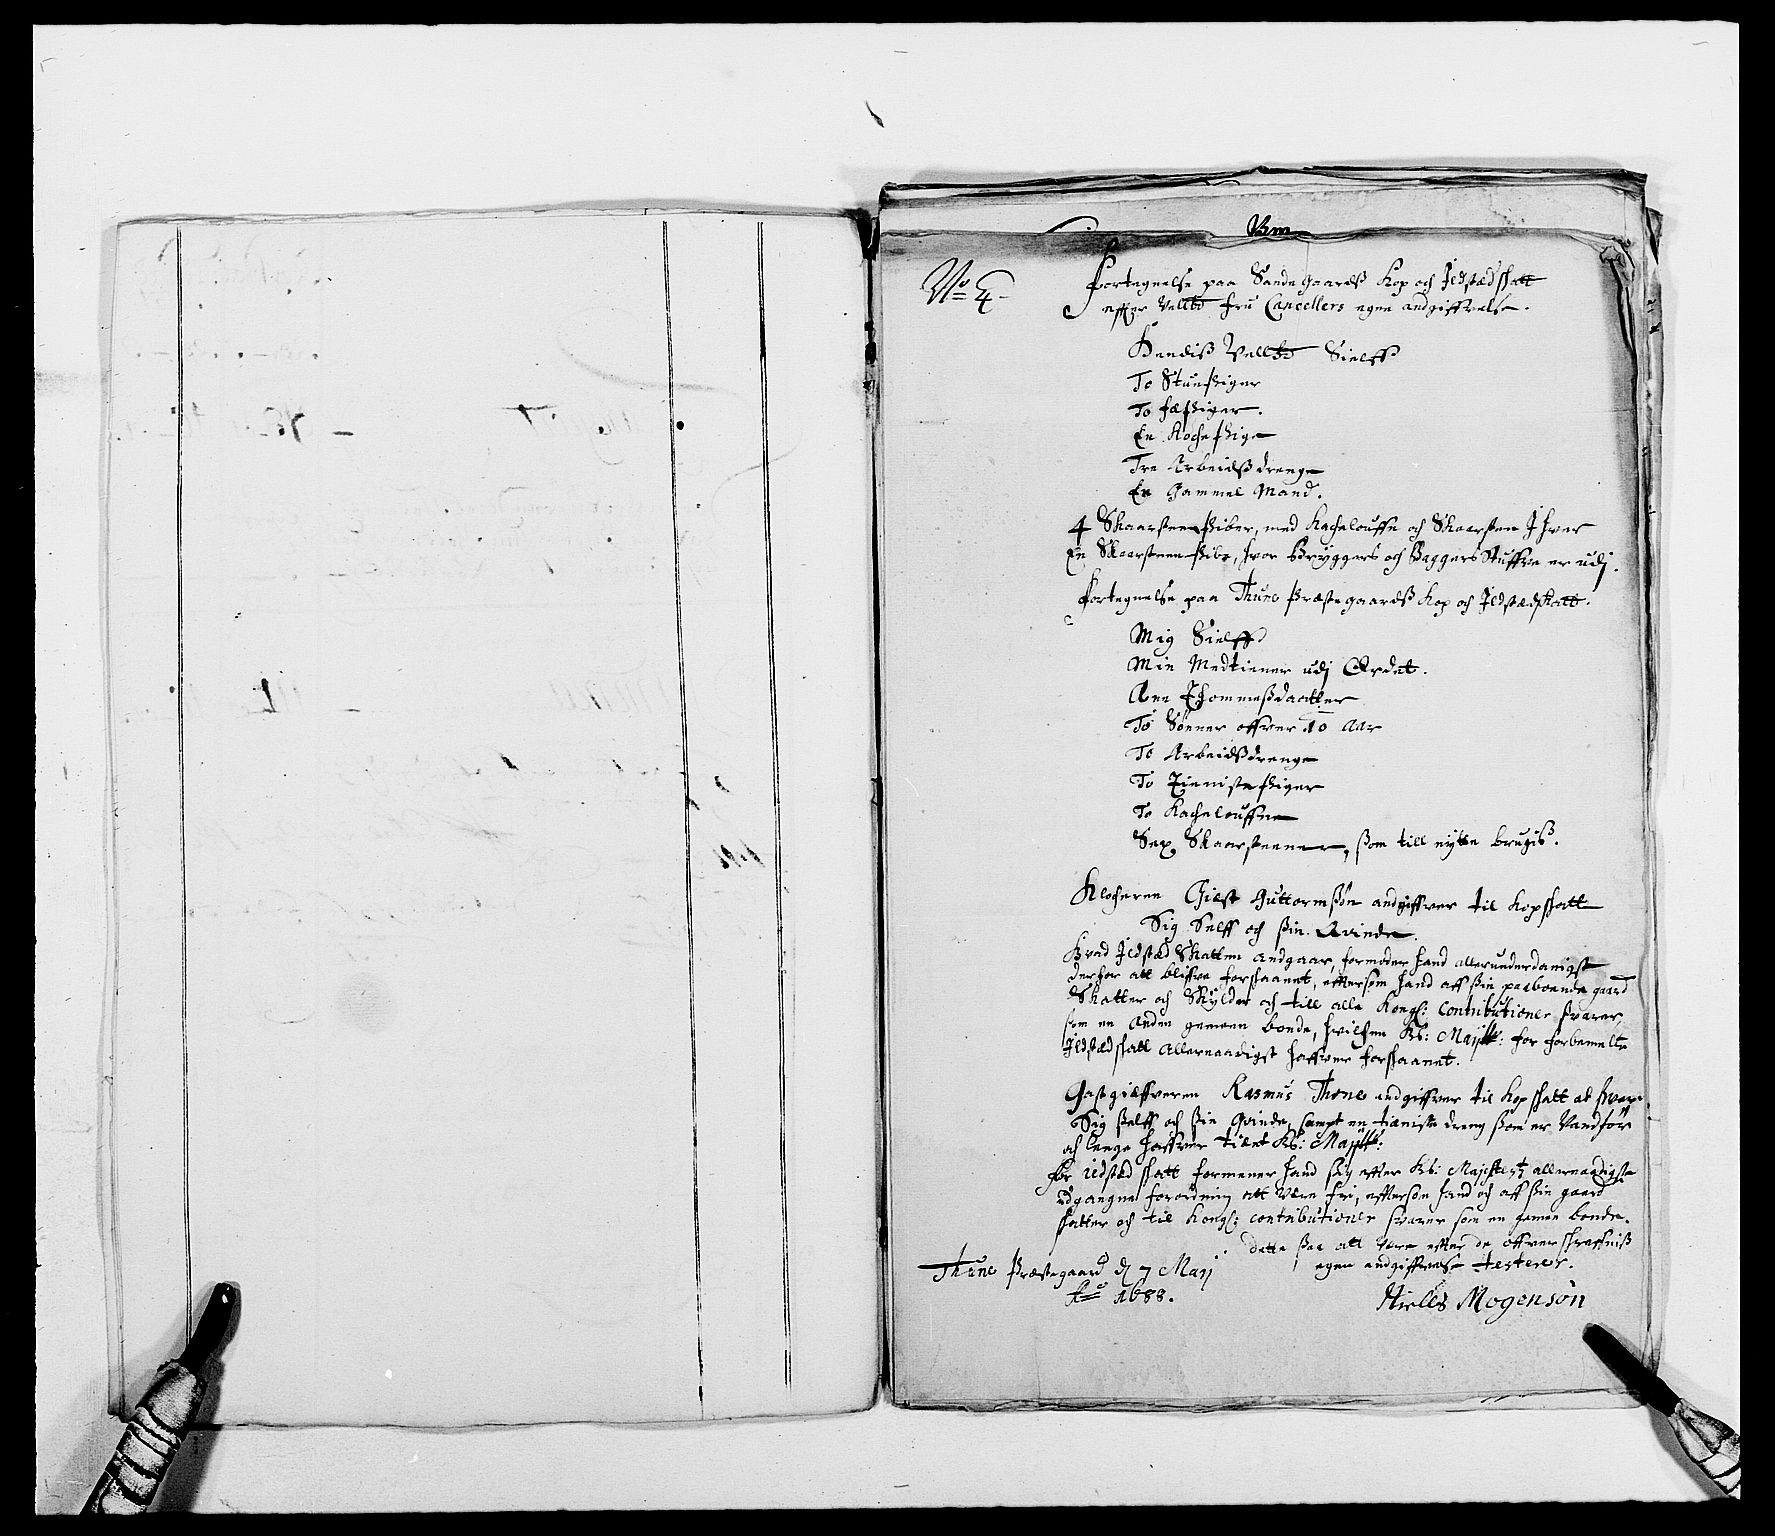 No 4
Fortegnelse paa Sandegaardß Kop och Ildstædskatt
effter Velbd fru Cancellers egen andgiffvelse.
Hendiß Velbd Sielff
To Stuepiger
To fæpiger.
En Kochepige
Tre Arbeidßdrenge
En Gammel Mand.
4 Skaarsteenpiber, med Kachelouffne och Skaarsten J hver
En Skaarsteenpibe, hvor Bryggers och Baggers Stuffve er udj.
Fortegnelse paa Thune Præstegaardß Kop och Ildstædskatt.
Mig Sielff
Min Medtiener udj Ordet.
Ane Thommeßdaatter
To Sönner offver 10 aar
To Arbeidßdrenge
To Tienistepiger
To Kachelouffne
Sex Skaarsteener, som till nytte brugiß.
Klocheren Giest Guttormßön andgiffver til Kopskatt
Sig Selff och sin Qvinde.
Hvad Ildstæd Skatten andgaar, formoder hand allerunderdanigst
derfor att bliffve forskaanet, effterßom hand aff sin paaboende gaard
Skatter och Skylder och till alle Kongl: Contributioner svarer,
som en Anden gemeen bonde, hvilchen Kb: Majtt: for forbemelte
Ildstædskatt Allernaadigst haffver forskaanet.
Gastgiffveren Rasmus Thone andgiffver til Kopskatt at svare
Sig selff och sin Qvinde, sampt en tieniste dreng som er Vandför
och lenge haffver tient Kb: Majtt:
For ildsted skatt formener hand sig effter Kb: Majestetz allernaadigste
udgangne forordning att være fri, effterßom hand och aff sin gaard
skatter och til Kongl: contributioner svarer som en gemen bonde.
Dette saa att være effter de offverskreffniß
egen andgiffvelse testerer.
Thune Præstegaard d 7 Marj
Ao 1688.
Niells Mogensön